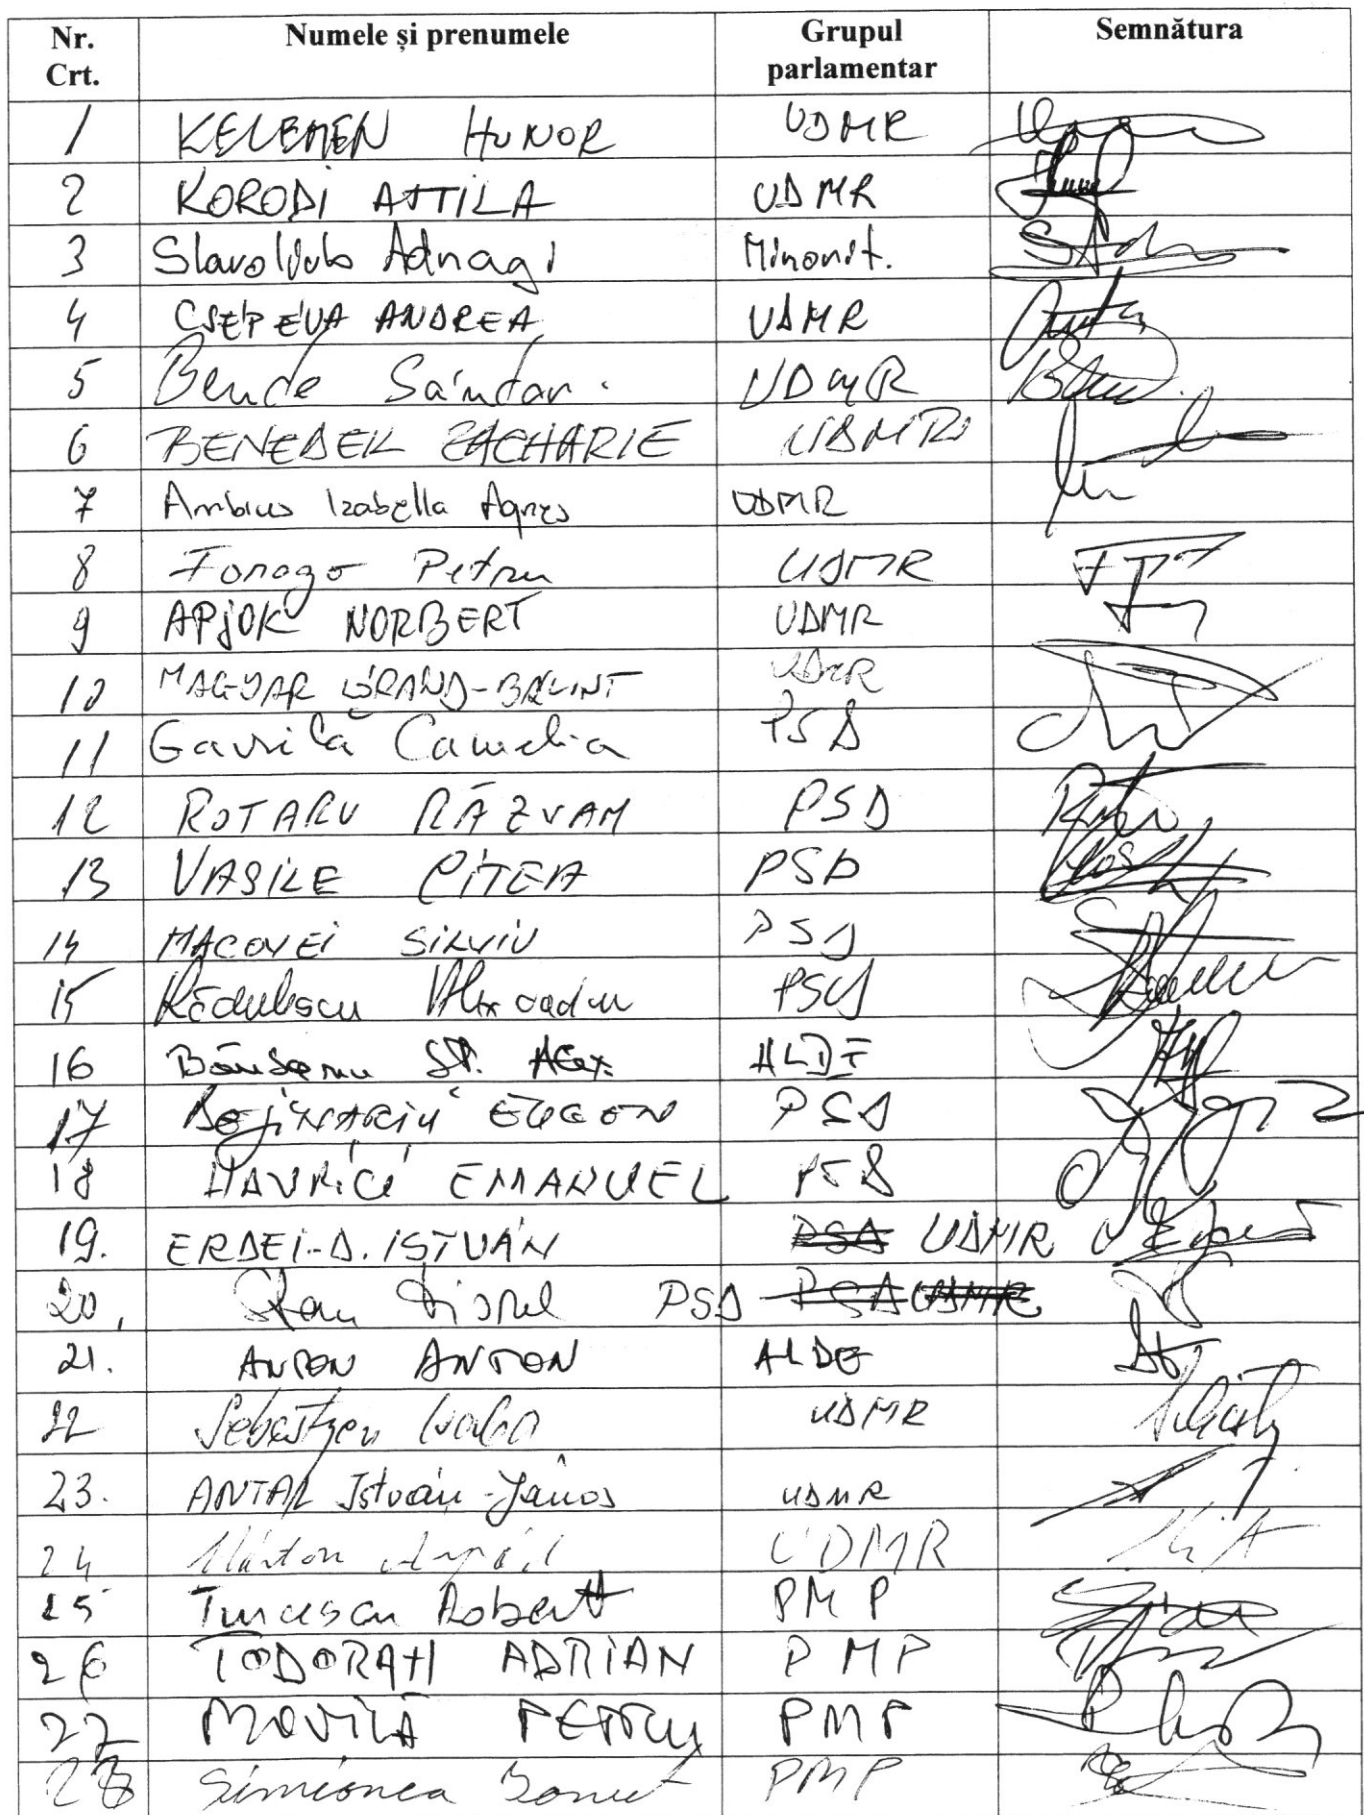 Nr. Crt. Numele și prenumele Grupul parlamentar Semnătura
1 KELEMEN HUNOR UDMR
2 KORODI ATTILA UDMR
3 Slavoliub Adnagi Minorit.
4 CSÉP ÉVA ANDREA UDMR
5 Bende Sándor. UDMR
6 BENEDEK ZACHARIE UDMR
7 Ambrus Izabella Agnes UDMR
8 Farago Petru UDMR
9 APJOK NORBERT UDMR
10 MAGYAR LÓRÁND-BÁLINT UDMR
11 Gavrilă Camelia PSD
12 ROTARU RĂZVAN PSD
13 VASILE CÎTEA PSD
14 MACOVEI SILVIU PSD
15 Rădulescu Alexandru PSD
16 St. Alex. ALDE
17 BEJINARIU EUGEN PSD
18 HAVRICI EMANUEL PSD
19. ERDEI-D. ISTVÁN PSD UDMR
20. PSD PSD UDMR
21. ANTON ANTON ALDE
22 Sebestyen UDMR
23. ANTAL István-János UDMR
24 Márton Arpád UDMR
25 Turcescu Robert PMP
26 TODORAN ADRIAN PMP
27 MOVILĂ PETRU PMP
28 Simionca Ionuț PMP